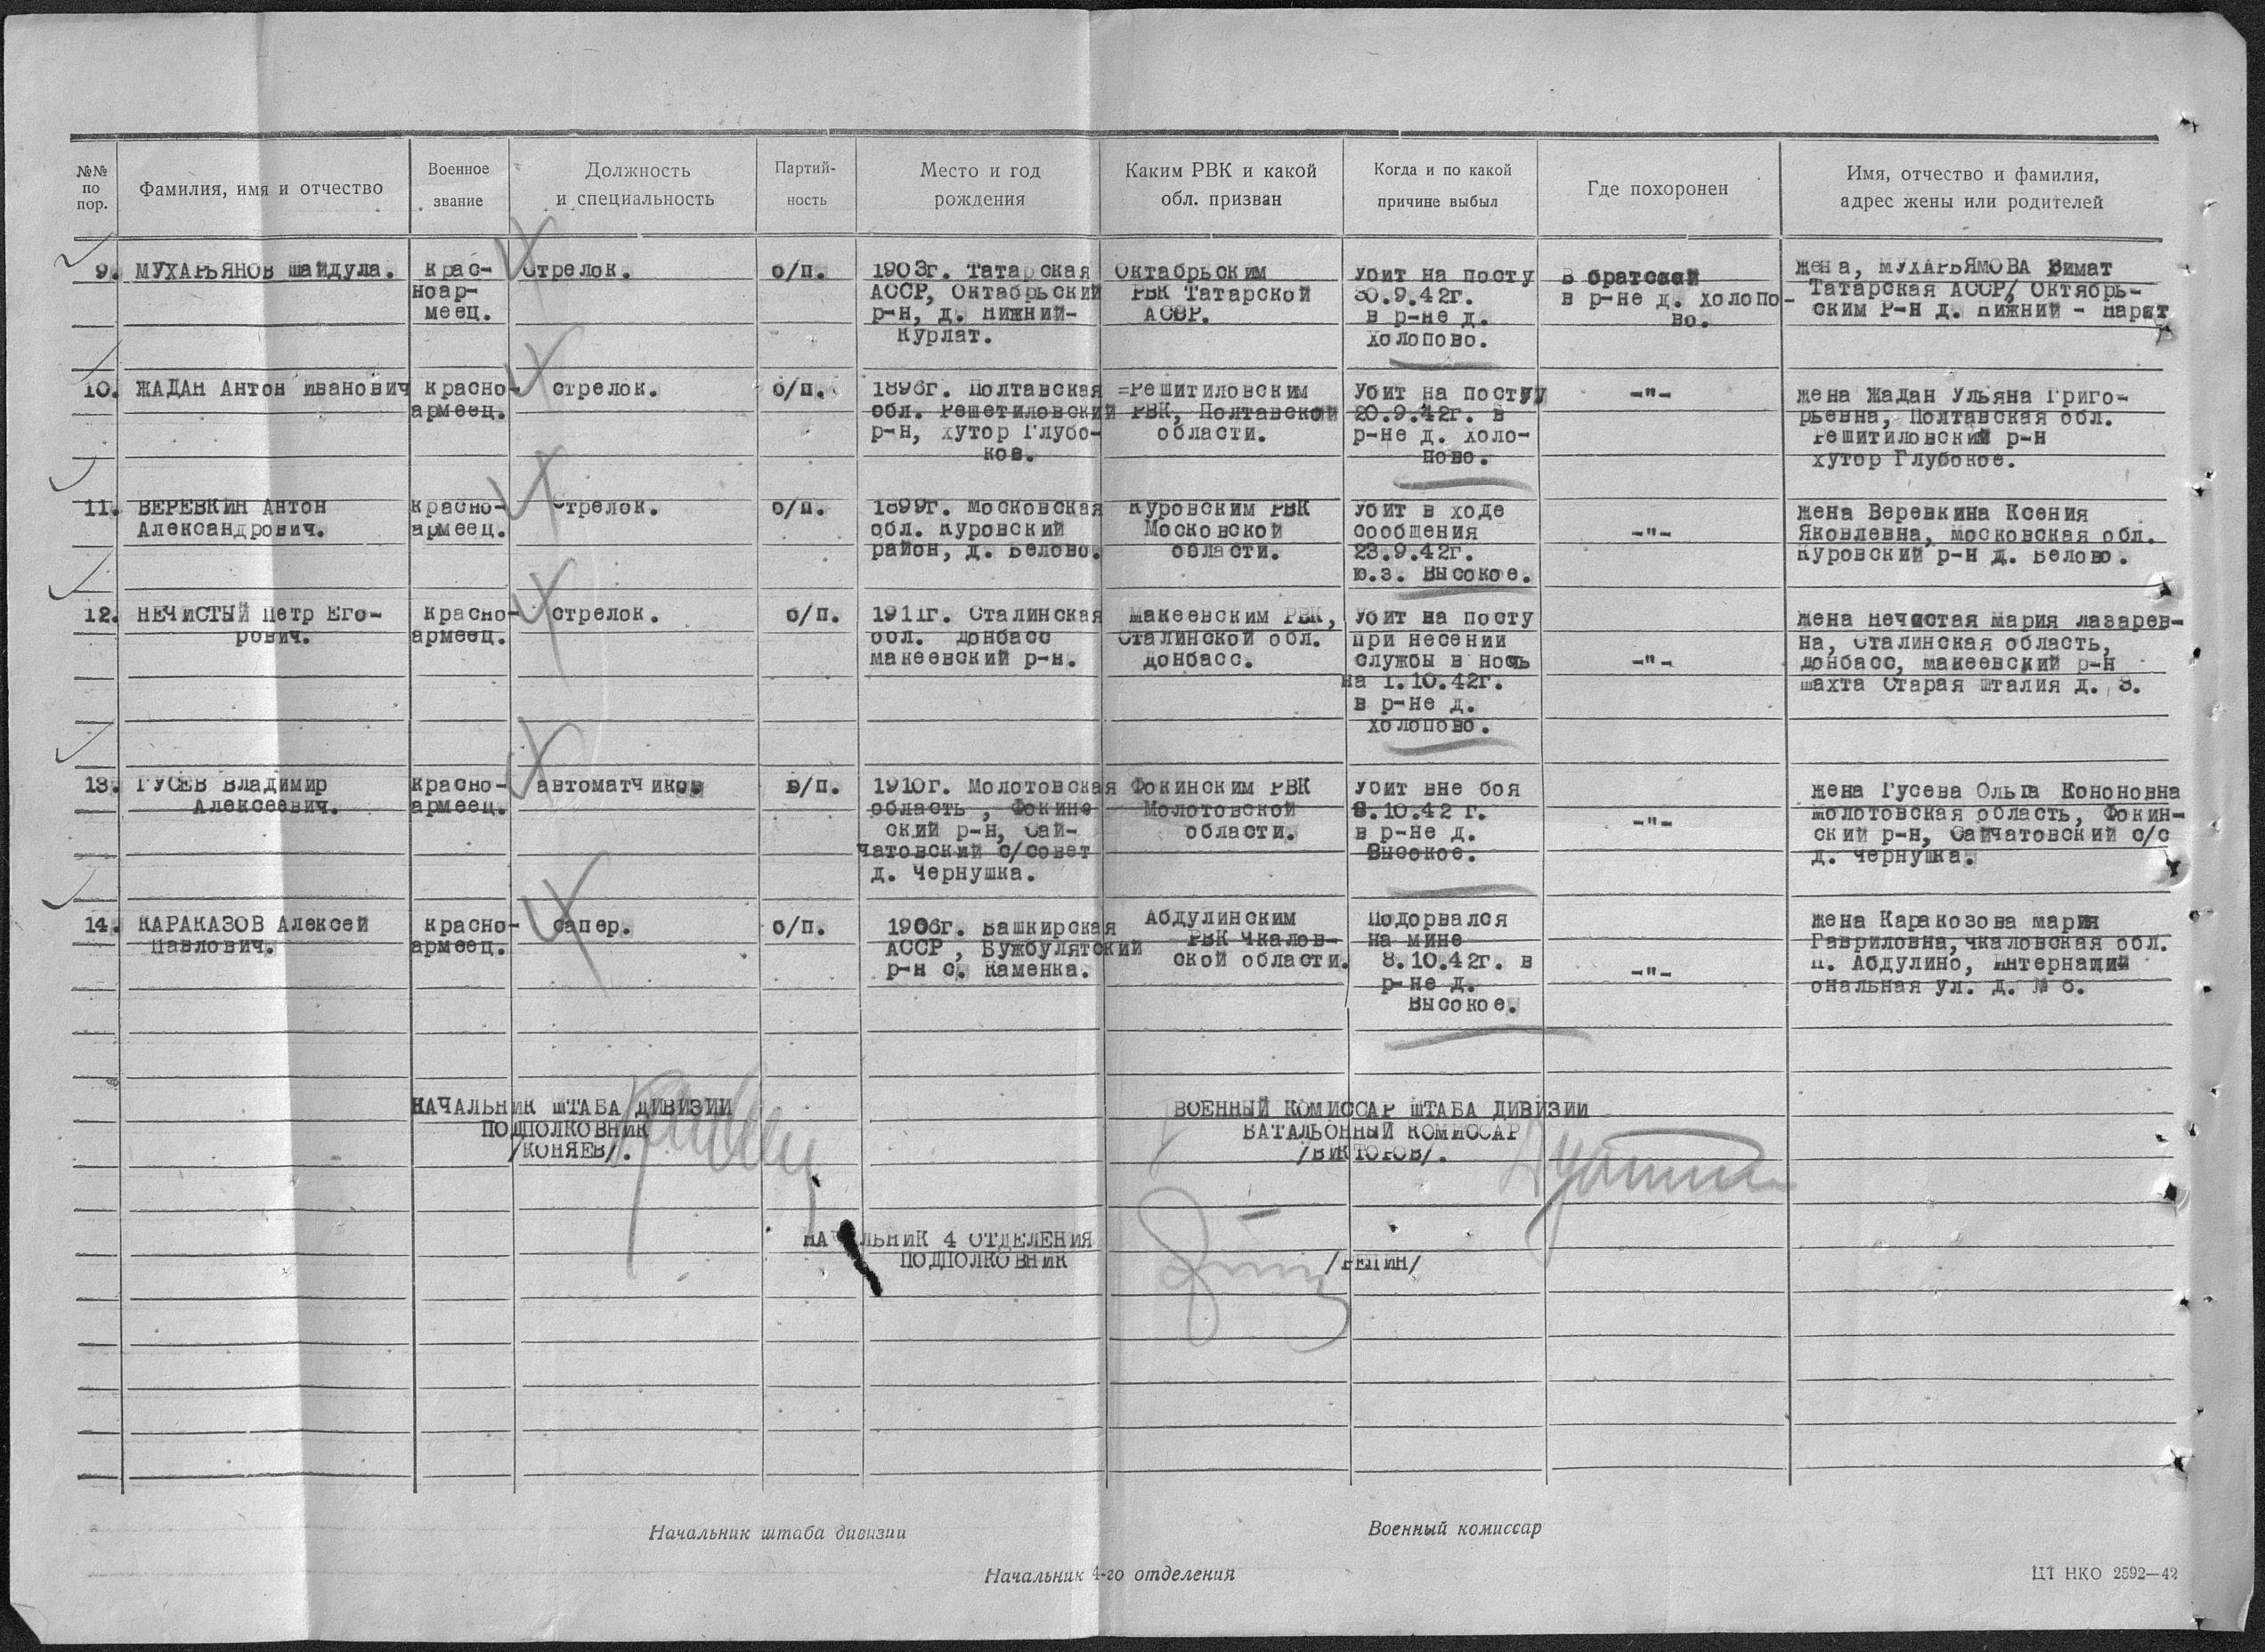 №№ по пор.
Фамилия, имя и отчество
Военное звание
Должность и специальность
Партий-ность
Место и год рождения
Каким РВК и какой обл. призван
Когда и по какой причине выбыл
Где похоронен
Имя, отчество и фамилия, адрес жены или родителей
9. МУХАРЬЯНОВ Шайдула.
Крас-
ноар-
меец.
Стрелок.
б/п.
1903г. Татарская
АССР, Октябрьский
р-н, д. Нижний-
Курлат.
Октябрьским
РВК Татарской
АССР.
Убит на посту
30.9.42г.
в р-не д.
Холопово.
В братской
в р-не д. Холопо-
во.
Жена, МУХАРЬЯМОВА
Татарская АССР, Октябрь-
ским Р-н д. Нижний -
10. ЖАДАН Антон Иванович
Красно-
армеец.
стрелок.
б/п.
1896г. Полтавская
обл. Решетиловский
р-н, хутор Глубо-
ков.
=Решитиловским
РВК, Полтавской
области.
Убит на посту
20.9.42г. в
р-не д. Холо-
пово.
-"-
Жена Жадан Ульяна Григо-
рьевна, Полтавская обл.
Решитиловский р-н
хутор Глубокое.
11. ВЕРЕВКИН Антон
Александрович.
Красно-
армеец.
Стрелок.
б/п.
1899г. Московская
обл. Куровский
район, д. Белово.
Куровским РВК
Московской
области.
Убит в ходе
сообщения
23.9.42г.
ю.з. Высокое.
-"-
Жена Веревкина Ксения
Яковлевна, Московская обл.
Куровский р-н д. Белово.
12. НЕЧИСТЫЙ Петр Его-
рович.
Красно-
армеец.
стрелок.
б/п.
1911г. Сталинская
обл. Донбасс
Макеевский р-н.
Макеевским РВК,
Сталинской обл.
Донбасс.
Убит на посту
при несении
службы в ночь
на 1.10.42г.
в р-не д.
Холопово.
-"-
Жена Нечистая Мария Лазарев-
на, Сталинская область,
Донбасс, Макеевский р-н
шахта Старая Италия д. 3.
13. ГУСЕВ Владимир
Алексеевич.
Красно-
армеец.
автоматчиков
б/п.
1910г. Молотовская
область, Фокинс-
ский р-н, Сай-
чатовский с/совет
д. Чернушка.
Фокинским РВК
Молотовской
области.
Убит вне боя
8.10.42 г.
в р-не д.
Высокое.
-"-
Жена Гусева Ольга Кононовна
Молотовская область, Фокин-
ский р-н, Сайчатовский с/с
д. Чернушка.
14. КАРАКАЗОВ Алексей
Павлович.
Красно-
армеец.
сапер.
б/п.
1906г. Башкирская
АССР, Бужбулятский
р-н с. Каменка.
Абдулинским
РВК Чкалов-
ской области.
Подорвался
на мине
8.10.42г. в
р-не д.
Высокое.
-"-
Жена Каракозова Мария
Гавриловна, Чкаловская обл.
п. Абдулино, Интернаций
ональная ул. д. № 6.
НАЧАЛЬНИК ШТАБА ДИВИЗИИ
ПОДПОЛКОВНИК
/КОНЯЕВ/.
ВОЕННЫЙ КОМИССАР ШТАБА ДИВИЗИИ
БАТАЛЬОННЫЙ КОМИССАР
/ВИКТОРОВ/.
НАЧАЛЬНИК 4 ОТДЕЛЕНИЯ
ПОДПОЛКОВНИК
/РЕПИН/
Начальник штаба дивизии
Военный комиссар
Начальник 4-го отделения
ЦТ НКО 2592—42